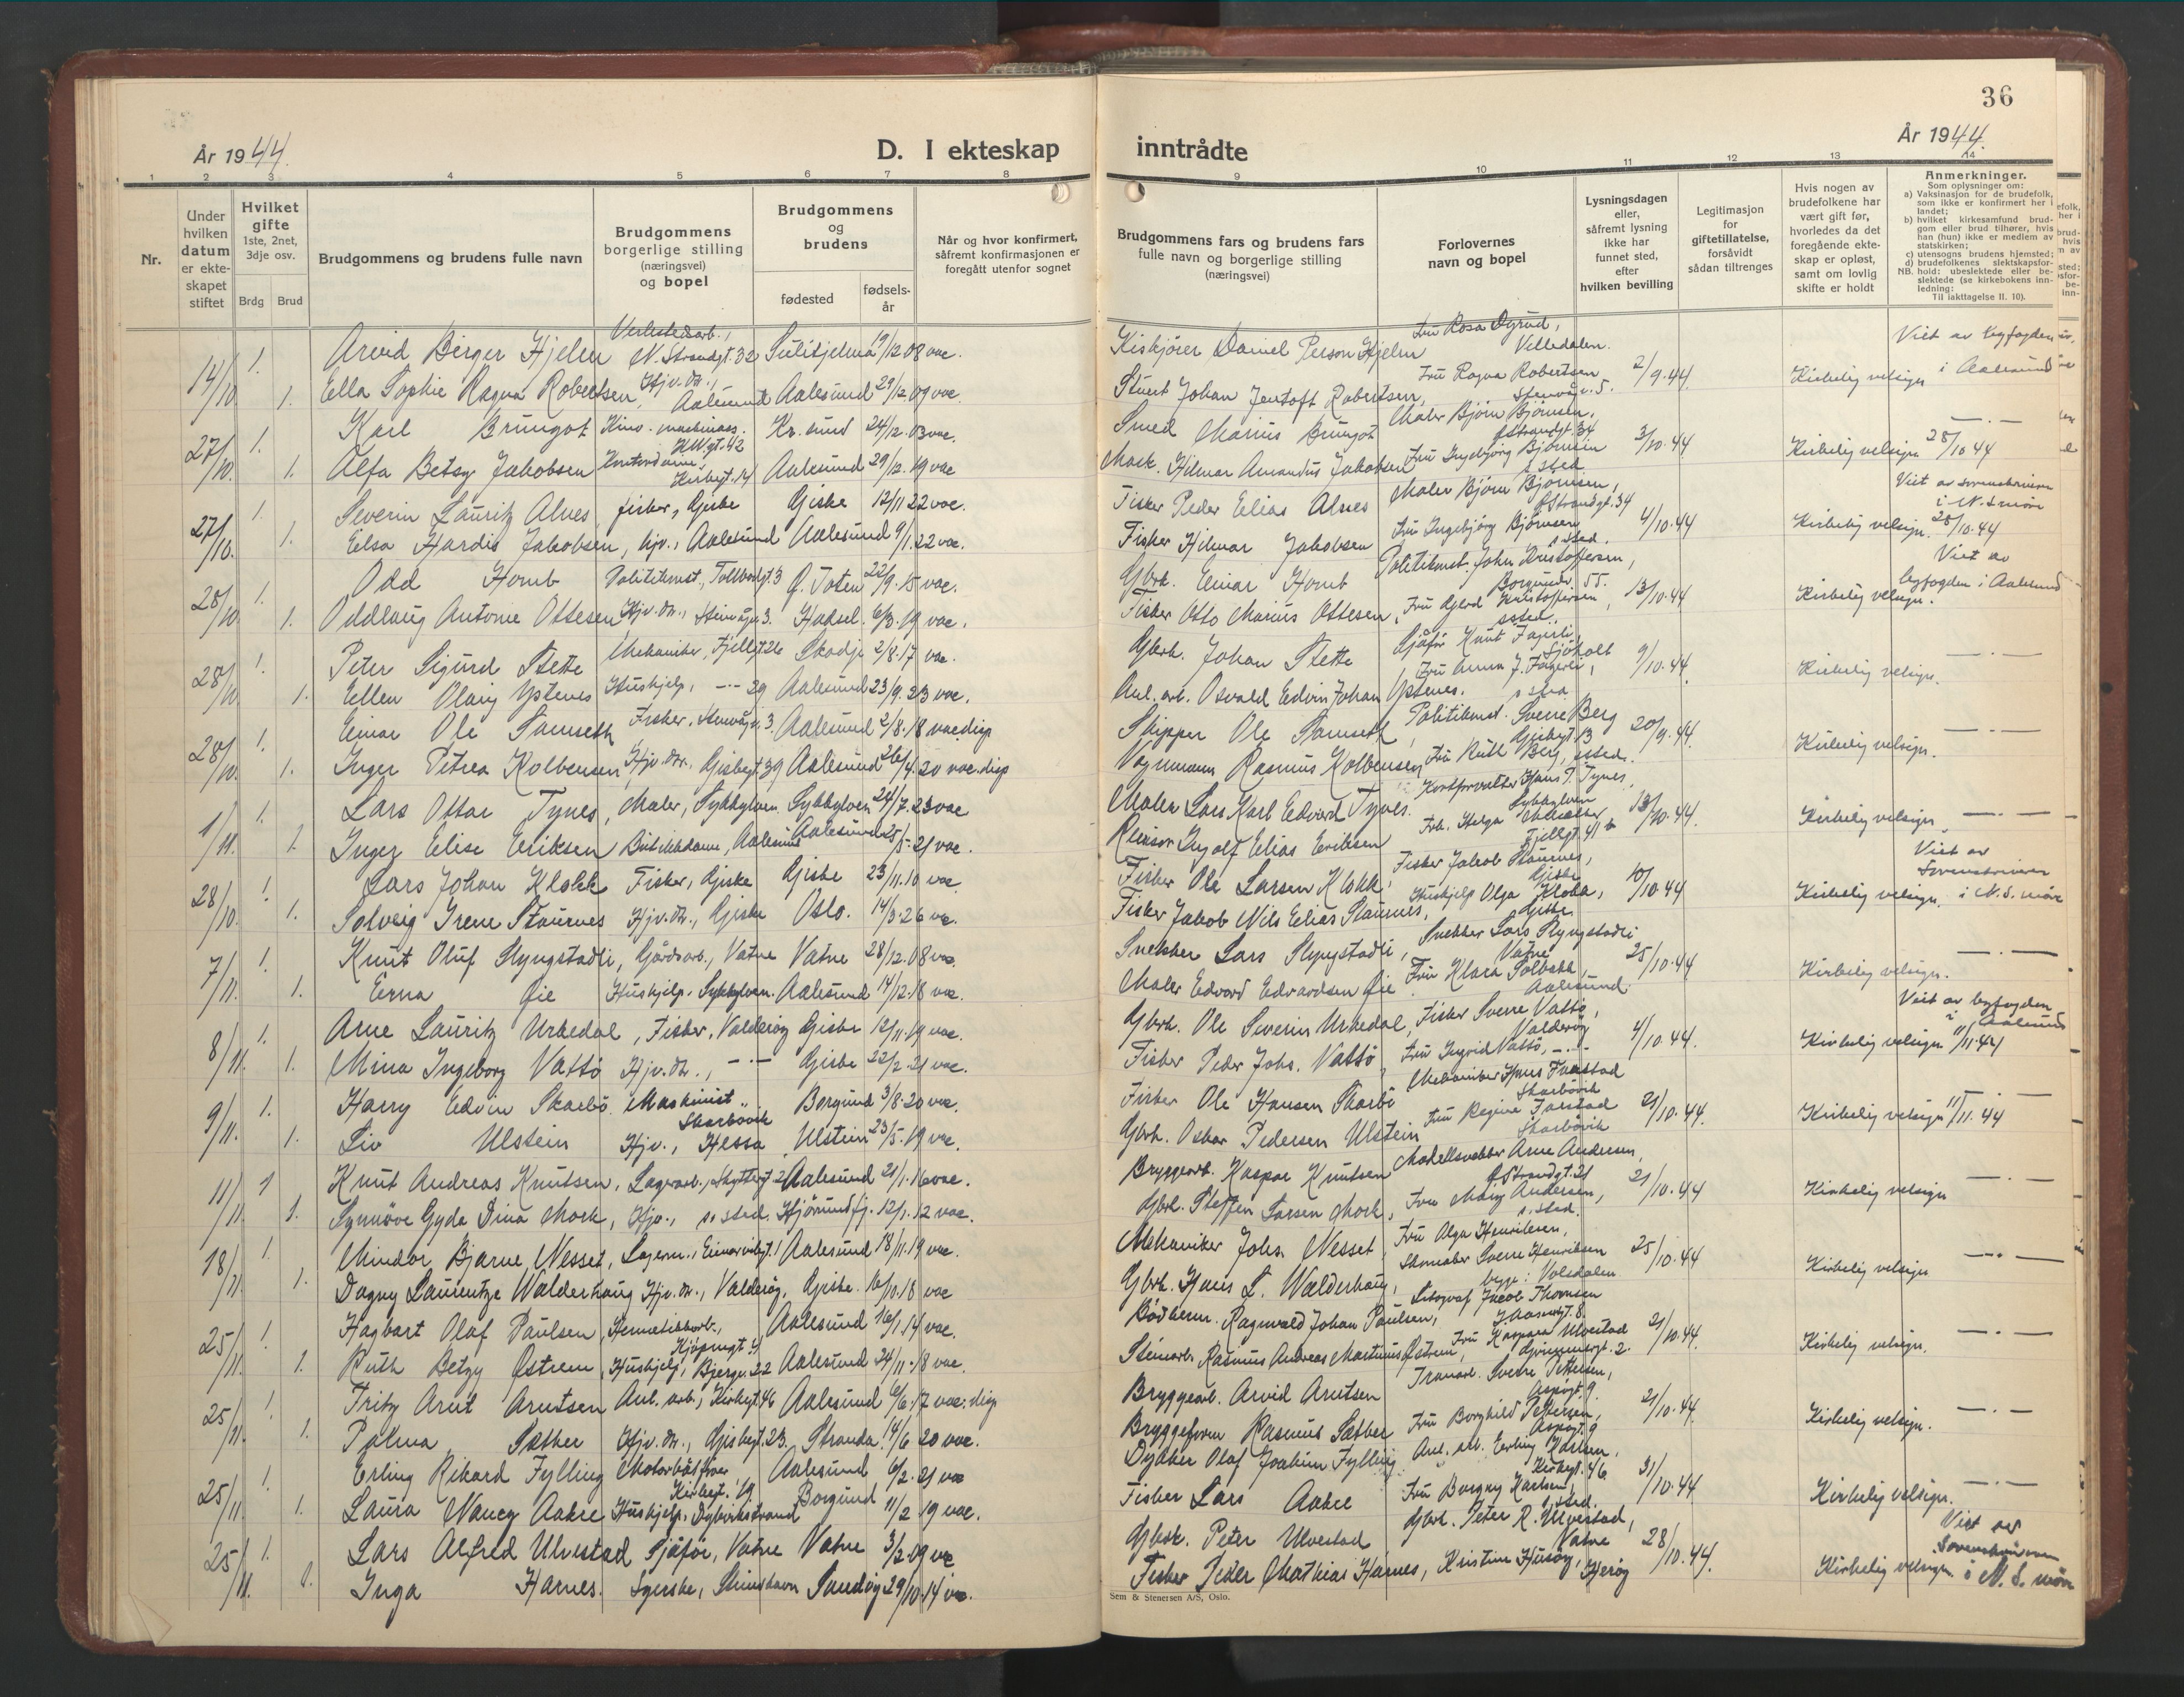 36
År 1944.
D. I ekteskap inntrådte
År 1944.
1 2 3 4 5 6 7 8 9 10 11 12 13 14
Nr.
Under hvilken datum er ekteskapet stiftet
Hvilket gifte 1ste, 2net, 3dje osv.
Brdg Brud
Brudgommens og brudens fulle navn
Brudgommens borgerlige stilling (næringsvei) og bopel
Brudgommens og brudens
fødested
fødselsår
Når og hvor konfirmert, såfremt konfirmasjonen er foregått utenfor sognet
Brudgommens fars og brudens fars fulle navn og borgerlige stilling (næringsvei)
Forlovernes navn og bopel
Lysningsdagen eller, såfremt lysning ikke har funnet sted, efter hvilken bevilling
Legitimasjon for giftetillatelse, forsåvidt sådan tiltrenges
Hvis nogen av brudefolkene har vært gift før, hvorledes da det foregående ekteskap er opløst, samt om lovlig skifte er holdt
Anmerkninger.
Som oplysninger om:
a) Vaksinasjon for de brudefolk, som ikke er konfirmert her i landet;
b) hvilket kirkesamfund brudgom eller brud tilhører, hvis han (hun) ikke er medlem av statskirken;
c) utensogns brudens hjemsted;
d) brudefolkenes slektskapsforhold: ubeslektede eller beslektede (se kirkebokens innledning:
NB.
Til iakttagelse II. 10).
14/10 1. Arvid Birger Hjelm Verkstedarb., N. Strandgt. 32 Sulitjelma 19/12 08 vac. Daniel Person Hjelm Fru Rosa Villedalen. 2/9.44 Kirkelig velsign. Viet av byfogden i Aalesund
1. Ella Sophie Ragna Robertsen, Hjv. dr., Aalesund Aalesund 29/12.09 vac. Stuert Johan Jentoft Robertsen, Fru Ragna Robertsen Steinvågv. 5.
27/10. 1. Karl Brungot Kino-maskinass. Kr.sund 24/12.03 vac. Smed Marius Brungot Maler Bjørn Bjørnsen, Ø Strandgt. 34 3/10.44 Kirkelig velsign 28/10 44 —.—
1. Alfa Betsy Jakobsen Kontordame, Kirkegt. 14 Aalesund 29/12.19 vac Mask. Hilmar Amandus Jakobsen Fru Ingebjørg Bjørnsen s sted.
27/10. 1. Severin Lauritz Alnes, fisker, Giske Giske 12/11 22 vac. Fisker Peder Elias Alnes Maler Bjørn Bjørnsen, Ø Strandgt. 34 4/10.44 Kirkelig velsign. 28/10.44 Viet av sorenskriveren i N. S.møre
1. Elsa Hardis Jakobsen, hjv., Aalesund Aalesund 9/1.22 vac. Fisker Hilmar Jakobsen Fru Ingebjørg Bjørnsen s sted.
28/10. 1. Odd Homb Politikonst., Tollbodgt. 3 Ø. Toten 22/9.15 vac. Gbrk. Einar Homb Politikonst. John Kristoffersen, Borgundv. 55. 13/10.44 Kirkelig velsign. Viet av byfogden i Aalesund
1. Oddlaug Antonie Ottesen Hjv. dr., Steinvågv. 3. Hadsel. 6/3.19 vac. Fisker Otto Marius Ottesen, Fru Kristoffersen, s sted.
28/10. 1. Peter Sigurd Stette Mekaniker, Fjellgt 26 Skodje 2/8.17 vac. Gbrk. Johan Stette Sjåfør Knut Fagerli, Sjøholt 9/10.44. Kirkelig velsign. —.—
1. Ellen Olaug Ystenes Hushjelp, —.— 29 Aalesund 23/9.23 vac. Anl. arb. Osvald Edvin Johan Ystenes. Fru Anna J. Fagerli, s sted
28/10. 1. Einar Ole Samseth Fisker, Steinvågv. 3. Aalesund 2/8.18 vac. disp Skipper Ole Samseth, Politikonst. Sverre Berg 20/9.44. Kirkelig velsign. —.—
1. Inger Petrea Kolbensen Hjv. dr., 39 Aalesund 26/4.20 vac. disp Vognmann Rasmus Kolbensen Fru Ruth Berg, s sted.
1/11. 1. Lars Ottar Tynes, Maler, Sykkylven Sykkylven 24/7.23 vac Maler Lars Karl Edvard Tynes. Hans P. Tynes, Sykkylven 13/10.44. Kirkelig velsign. —.—
1. Inger Elise Eriksen Butikkdame, Aalesund Aalesund 25/5.21 vac. Revisor Ingolf Elias Eriksen Frk. Helga Fjellgt. 41 b
28/10. 1. Lars Johan Klokk Fisker, Giske Giske 23/11.10 vac. Fisker Ole Larsen Klokk, Fisker Jakob Staurnes, Giske 10/10.44 Kirkelig velsign. Viet av Sorenskriveren i N. S. møre
1. Solveig Irene Staurnes Hjv. dr., Giske Oslo. 14/3.26 vac. Fisker Jakob Nils Elias Staurnes, Hushjelp Olga Klokk, Giske
7/11. 1. Knut Oluf Slyngstadli, Gårdsarb., Vatne Vatne 28/12.08 vac. Snekker Lars Slyngstadli, Snekker Lars Slyngstadli Vatne 25/10.44 Kirkelig velsign. —.—
1. Erna Øie Hushjelp, Sykkylven. Aalesund 14/12.18 vac. Maler Edvard Edvardsen Øie Fru Klara Solbakk, Aalesund.
8/11. 1. Arne Lauritz Urkedal, Fisker, Valderøy Giske 12/11.19 vac. Gbrk. Ole Severin Urkedal, Fisker Sverre Vattø, Valderøy 4/10.44. Kirkelig velsign 11/11.44 Viet av byfogden i Aalesund
1. Mina Ingeborg Vattø Hjv. dr., —.— Giske 22/2.21 vac. Fisker Peder Johs. Vattø, Fru Ingrid Vattø, —.—
9/11. 1. Harry Edvin Skarbø. Maskinist, Skarbøvik Borgund 3/8.20 vac. Fisker Ole Hansen Skarbø Mekaniker Hans Skarbøvik 21/10.44. Kirkelig velsign 11/11.44 —.—
1. Liv Ulstein Hjv., Hessa Ulstein 23/5.19 vac. Gbrk. Oskar Pedersen Ulstein Fru Regine Skarbøvik
11/11. 1 Knut Andreas Knutsen, Lagerarb., Aalesund 21/1.16 vac. Bryggearb. Kaspar Knutsen Modellsnekker Arne Andersen, Ø Strandgt. 21 21/10.44 Kirkelig velsign —.—
1. Synnøve Gyda Dina Mork, Hjv., s. sted. Hjørundfj. 12/1.12 vac. Gbrk. Steffen Larsen Mork, Fru Mary Andersen, s. sted.
18/11. 1. Mindor Bjarne Nesset, Lagerm., Einarvikgt. 1 Aalesund 18/11.19 vac. Mekaniker Johs. Nesset, Fru Olga Henriksen, 25/10.44 Kirkelig velsign —.—
1. Dagny Laurentze Walderhaug Hjv. dr., Valderøy, Giske. 16/10.18 vac Gbrk. Hans L. Walderhaug, Skomaker Sverre Henriksen begge: Volsdalen
25/11. 1. Hagbart Olaf Paulsen, Hermetikkarb., Aalesund 16/1.14 vac. Ragnvald Johan Paulsen, Litograf Jacob Thomsen 21/10.44. Kirkelig velsign. —.—
1. Ruth Betzy Østrem, Hushjelp, Bjergv. 22 Aalesund 24/11.18 vac. Steinarb. Rasmus Andreas Martinus Østrem, Fru Kaspara Ulvestad
25/11. 1. Fritz Arnt Arntsen Anl. arb., Kirkegt. 46 Aalesund 6/6.17 vac. disp Bryggearb. Arvid Arntsen Sverre Pettersen, Aspøgt. 9. 21/10.44. Kirkelig velsign. —.—
1. Palma Sæther Hjv. dr., 23. Stranda 14/6 20 vac. Bryggeform Rasmus Sæther Fru Borghild Pettersen, Aspøgt. 9
25/11. 1. Erling Rikard Fylling Motorbåtfører, Kirkegt. 19 Aalesund 6/2.21 vac Dykker Olaf Joakim Fylling Anl. arb. Erling Karlsen, Kirkegt. 46 31/10.44 Kirkelig velsign. —.—
1. Laura Nancy Aakre Hushjelp, Borgund 11/2 19 vac. Fisker Lars Aakre Fru Borgny Karlsen, s sted.
25/11. 1. Lars Alfred Ulvestad Sjåfør, Vatne Vatne 3/2.09 vac Gbrk. Peter Ulvestad Gbrk. Peter R. Ulvestad, Vatne 28/10.44. Kirkelig velsign. Viet av Sorenskriveren i N. S. møre
1. Inga Harnes. Syerske, Sandøy 29/10.14 vac. Fisker Peder Mathias Harnes, Kristine Husøy, Herøy
Sem & Stenersen A/S, Oslo.